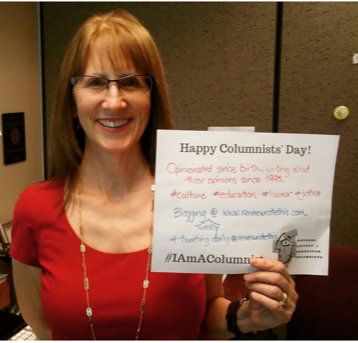 Happy Columnists' Day!
Opinionated since birth, writing about
those opinions since 1995.
#culture #education #humor #justice
Blogging @ www.reneewrotethis.com
+ tweeting daily @reneewrotethis
#IAmAColumnist